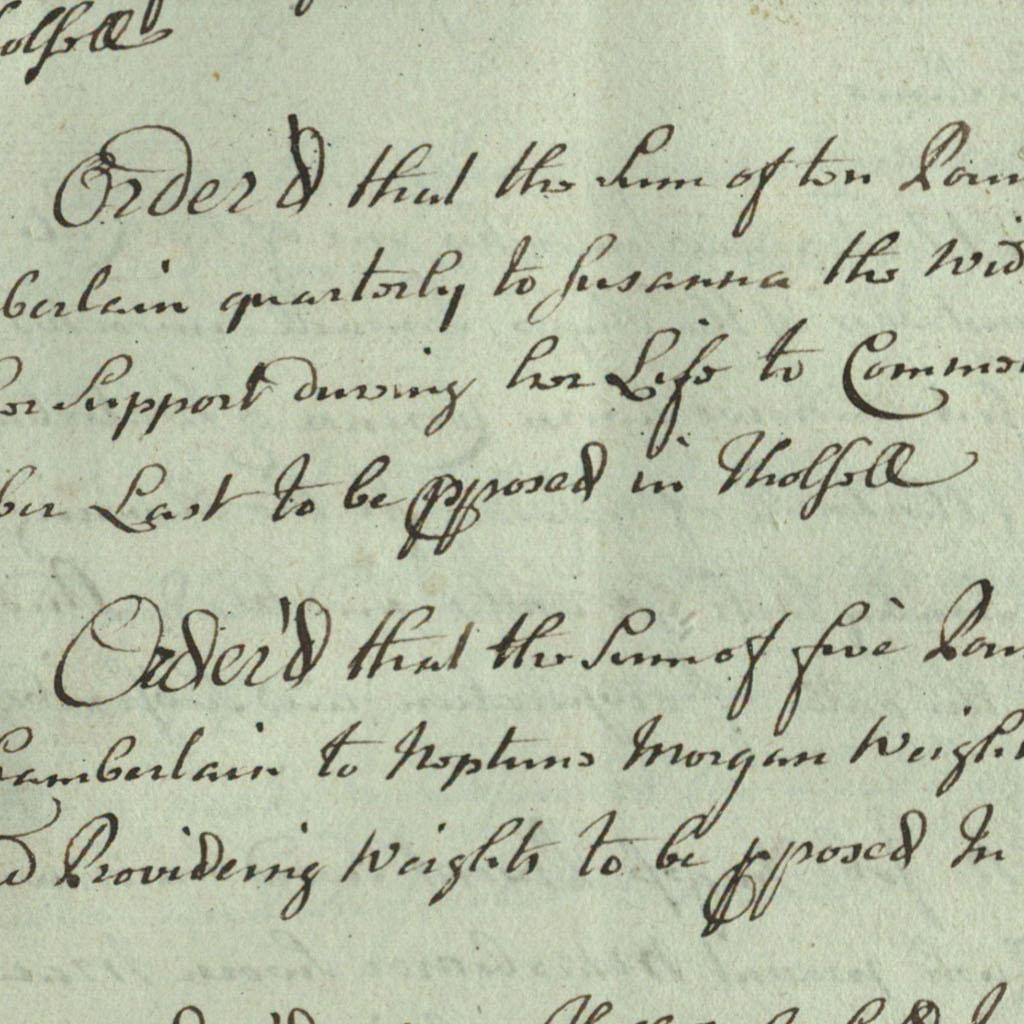 olsell
Order'd that the Sum of ten Poun
berlain quarterly to Susanna the Wid
her Support during her Life to Commen
ber Last to be pposed in Tholsell
Order'd that the Sum of five Poun
Chamberlain to Neptune Morgan Weigh
d Providing Weights to be pposed In